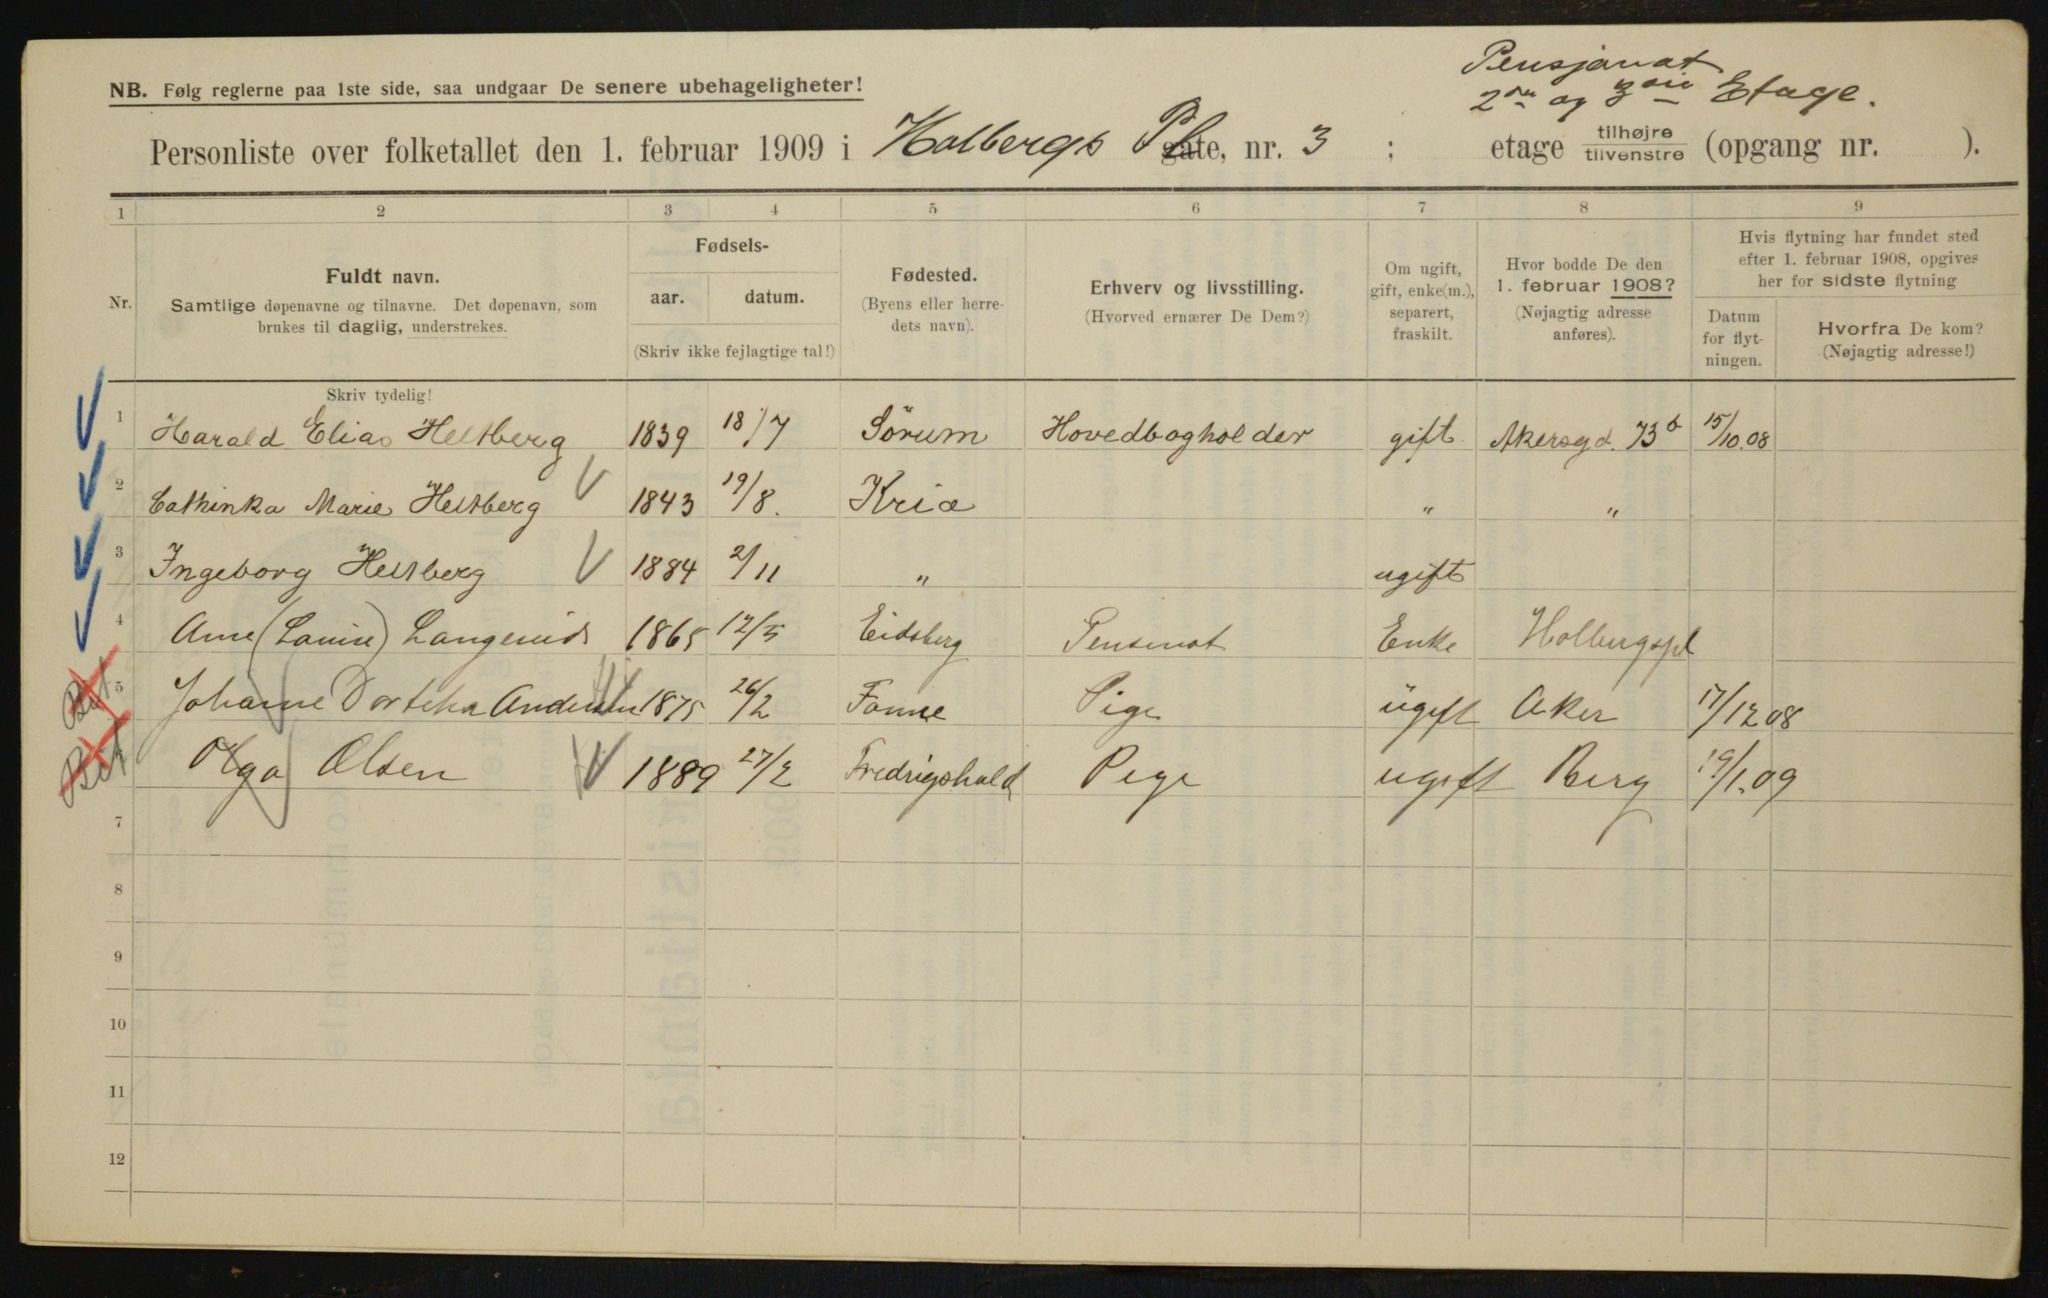 Pensjonat
2den og 3die Etage.
NB. Følg reglerne paa 1ste side, saa undgaar De senere ubehageligheter!
Personliste over folketallet den 1. februar 1909 i Holbergs Pl gate, nr. 3 ; etage tilhøjre tilvenstre (opgang nr. ).
1 2 3 4 5 6 7 8 9
Nr. Fuldt navn. Samtlige døpenavne og tilnavne. Det døpenavn, som brukes til daglig, understrekes.
Fødsels- aar. datum. (Skriv ikke fejlagtige tal!)
Fødested. (Byens eller herredets navn).
Erhverv og livsstilling. (Hvorved ernærer De Dem?)
Om ugift, gift, enke(m.), separert, fraskilt.
Hvor bodde De den 1. februar 1908? (Nøjagtig adresse anføres).
Hvis flytning har fundet sted efter 1. februar 1908, opgives her for sidste flytning
Datum for flytningen. Hvorfra De kom? (Nøjagtig adresse!)
Skriv tydelig!
1 Harald Elias Heltberg 1839 18/7 Sörum Hovedbogholder gift Akersgd. 73b 15/10.08
2 Cathinka Marie Heltberg 1843 19/8. Kria " "
3 Ingeborg Heltberg 1884 2/11 " ugift
4 Anne (Louise) 1865 12/5 Eidsberg Pensinat Enke Holbergspl
Bit 5 Johanne Dorthea Andersen 1875 26/2 Pige ugift Aker 17/12 08
Bit Olga Olsen 1889 27/2 Fredrigshald Pige ugift Berg 19/1.09
7
8
9
10
11
12